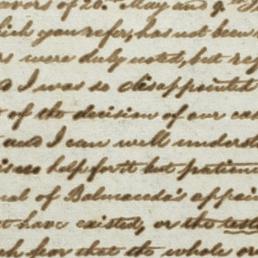 avors of 26. May and 9th
hich you refer, has not been
rs were duly noted, but
I was so disappointed
of the decision of our ca
and I can well underst
is no help for it but patien
al of Balmaceda's affai
t have existed, or the
ch fear that the whole or